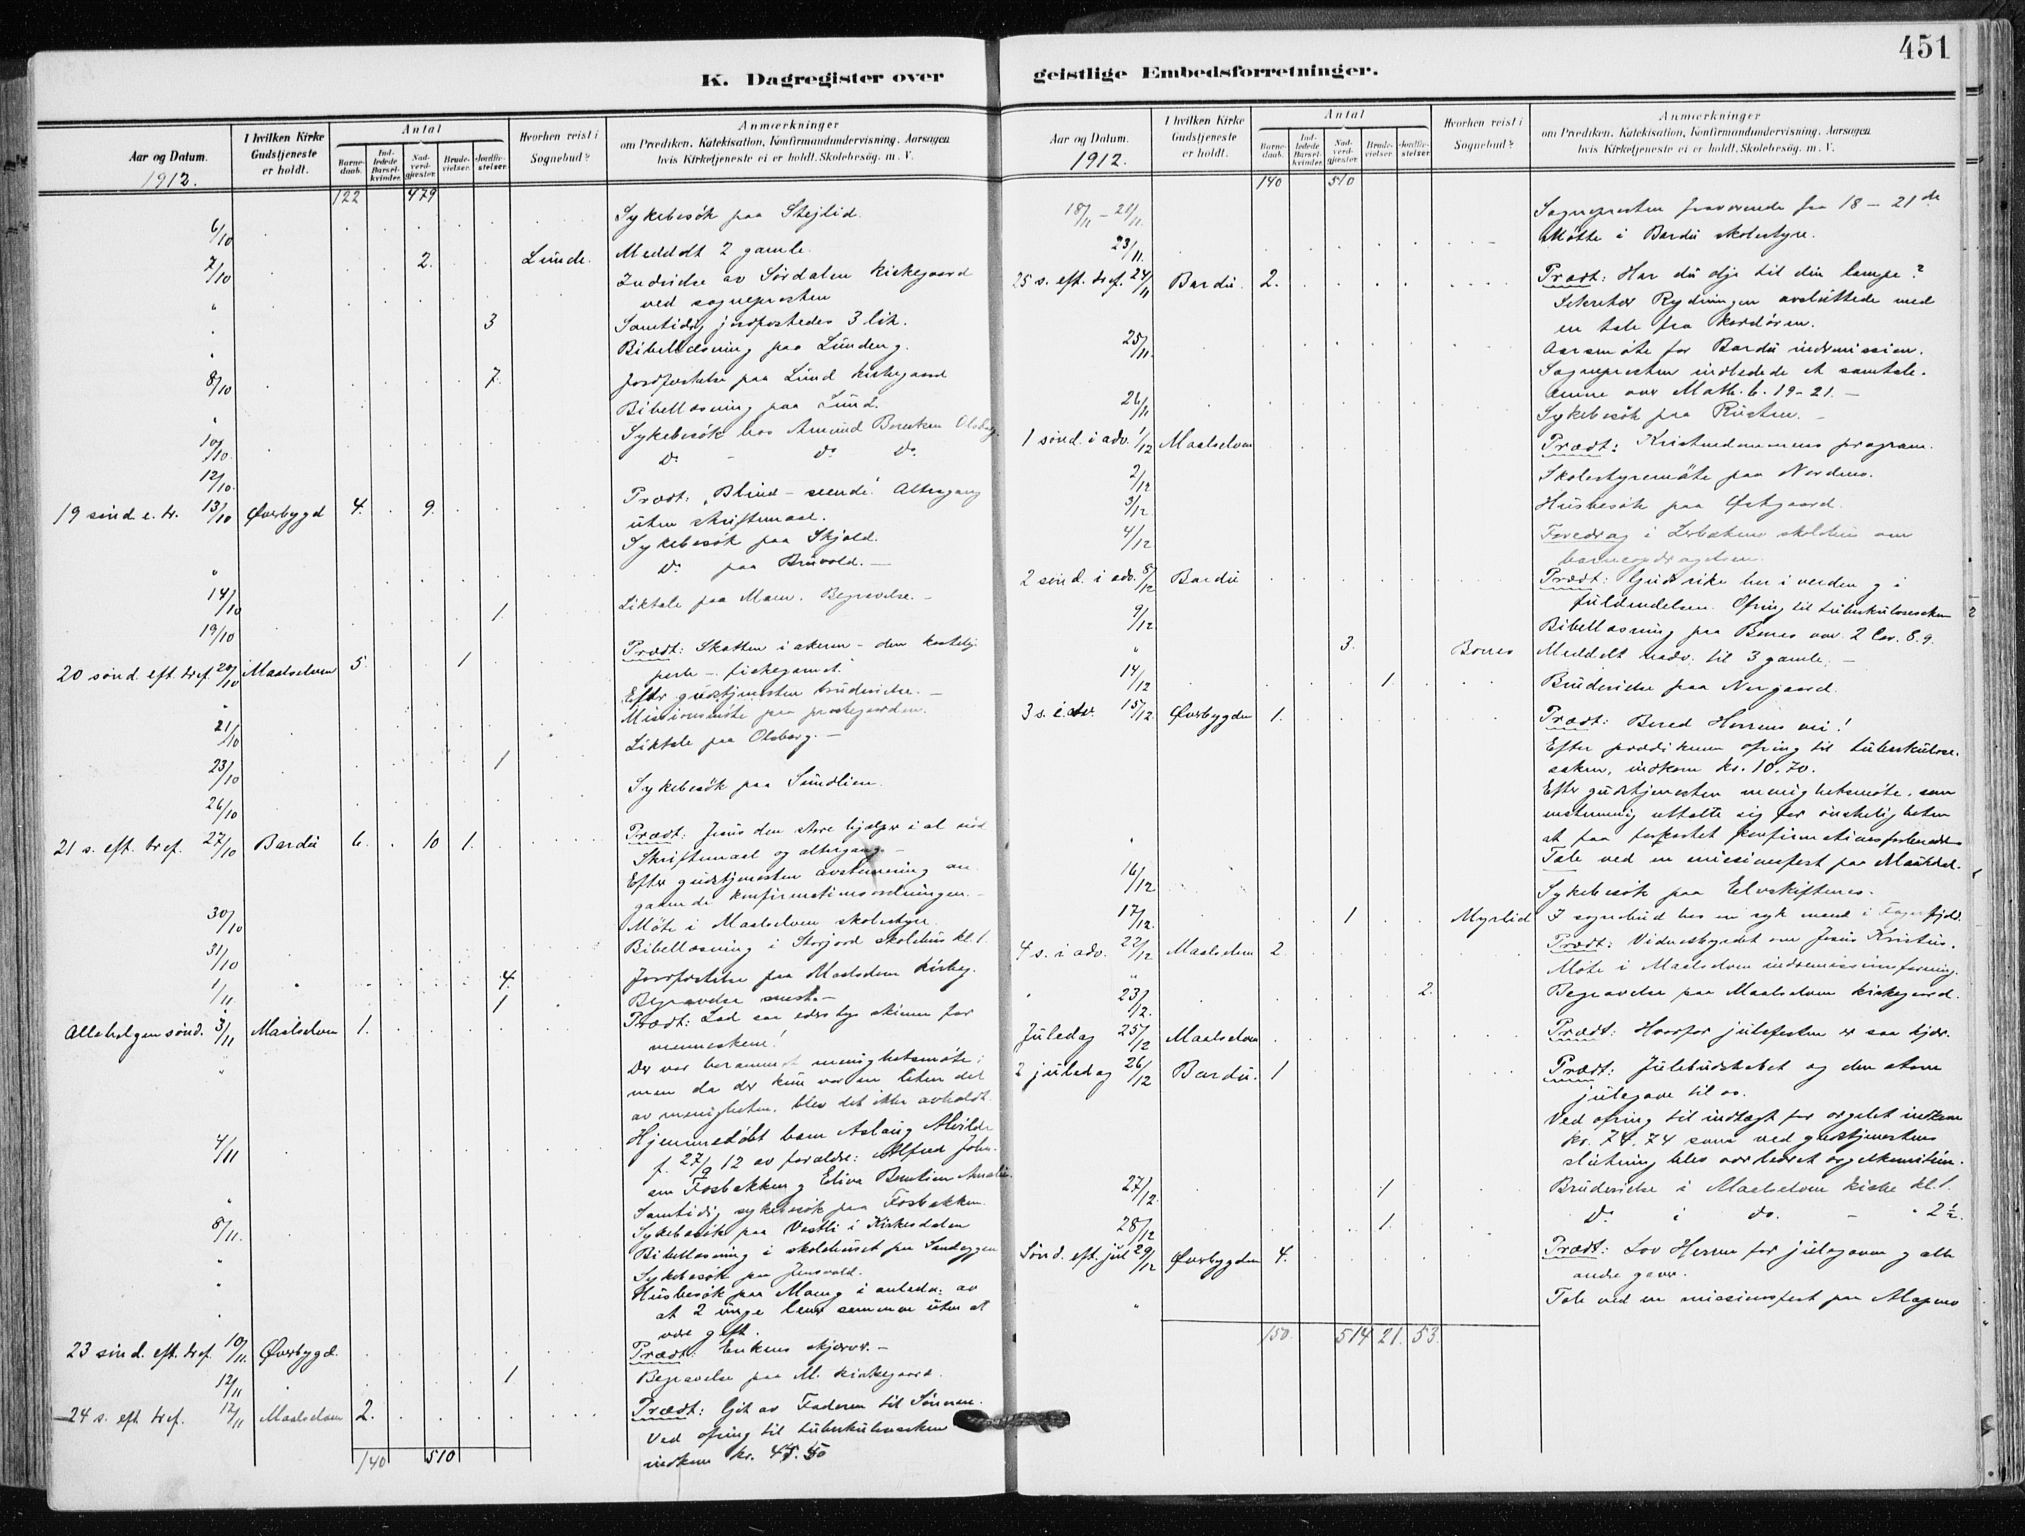 451
K. Dagregister over geistlige Embedsforretninger.
Aar og Datum.
1912.
I hvilken Kirke Gudstjeneste er holdt.
Antal
Barne-daab.
Ind-ledede Barsel-kvinder.
Nad-verd-gjæster.
Brude-vielser.
Jordfæ-stelser.
Hvorhen reist i Sognebud?
Anmærkninger
om Prædiken, Katekisation, Konfirmandundervisning, Aarsagen
hvis Kirketjeneste ei er holdt, Skolebesøg. m. V.
122 479
6/10 Sykebesök paa Stejlid.
7/10 2. Lunde. Meddelt 2 gamle.
" Indvielse av Sørdalen kirkegaard
ved sogneprosten
" 3 Samtidig jordfæstedes 3 lik.
" Bibellæsning paa Lundeng.
8/10 7. Jordfæstelse paa Lund kirkegaard
" Bibellæsning paa Lund.
10/10 Sykebesök hos Amund Olsborg.
12/10 Do - Do Do
19 sønd. e. tr. 13/10 Øverbygd 4. 9. Prædt: "Blind – seende". Altergang
uten skriftemaal.
" Sykebesök paa Skjold.
14/10 Do paa Bruvold. —
19/10 1. Liktale paa Moen. Begravelse. —
20 sønd. eft. tref. 20/10 Maalselven 5. 1 Prædt: Skatten i akeren – den kostelige
perle – fiskegarnet.
Efter gudstjenesten brudevielse. —
" Missionsmöte paa prostegaarden.
21/10
23/10 1 Liktale paa Olsborg. —
26/10 Sykebesök paa Sundlien.
21 s. eft. tref. 27/10 Bardu 6. 10 1. Prædt: Jesus den store hjælper i al nød
Skriftemaal og altergang. —
Efter gudstjenesten avstemning an-
gaaende konfirmationsordningen. —
30/10 Möte i Maalselven skolestyre.
31/10 Bibellæsning i Storjord skolehus kl. 1.
1/11 4. Jordfæstelse paa Maalselven kirkeg.
" 1 Begravelse smst. —
Allehelgensønd. 3/11 Maalselven 1. Prædt: Lad saa eders lys skinne for
menneskene!
" Der var berammet menighetsmöte;
men da der kun var en liten del
av menigheten, blev det ikke avholdt.
4/11 Hjemmedöbt barn Aslaug Alvilde
f. 27/9 12 av forældre: Alfred Johan-
sen Fosbakken og Eliva Bentine Amalie
" Samtidig sykebesök paa Fosbakken.
8/11. Sykebesök paa Vestli i Kirkesdalen
" Bibellæsning i skolehuset paa Sandeggen
" Sykebesök paa Jensvold.
" Husbesök paa Moen i anledn. av
at 2 unge lever sammen uten at
være gift.
23 sønd. eft. tref. 10/11. Øverbygd. Prædt: Enkens skjærv. —
12/11 1 Begravelse paa M. kirkegaard.
24 s. eft. tref. Maalselven 2. Prædt: Git av Faderen til Sönnen.
Ved ofring til tuberkulosesaken
indkom kr. 45.50
140 510
Aar og Datum.
1912.
I hvilken Kirke Gudstjeneste er holdt.
Antal
Barne-daab.
Ind-ledede Barsel-kvinder.
Nad-verd-gjæster.
Brude-vielser.
Jordfæ-stelser.
Hvorhen reist i Sognebud?
Anmærkninger
om Prædiken, Katekisation, Konfirmandundervisning, Aarsagen
hvis Kirketjeneste ei er holdt, Skolebesøg. m. V.
140 510
18/11 – 21/11. Sogneprosten fraværende fra 18 – 21de
23/11. Möte i Bardu skolestyre.
25 s. eft. tref. 24/11 Bardu. 2. Prædt: Har du olje til din lampe?
Sekretær Rydningen avsluttede med
en tale fra kordören.
25/11. Aarsmöte for Bardu indremission.
Sogneprosten indledede et samtale-
emne over Math. 6. 19–21. —
26/11 Sykebesök paa Rusten. —
1 sönd. i adv. 1/12 Maalselven Prædt: Kristendommens program.
2/12 Skolestyremöte paa Nordmo.
3/12. Husbesök paa Østgaard.
4/12 Foredrag i skolehus om
barneopdragelsen.
2 sönd. i adv. 8/12 Bardu Prædt: Guds rike her i verden og i
fuldendelsen. Ofring til tuberkulosesaken
9/12 Bibellæsning paa Bones over 2 Cor. 8. 9.
" 3. Bones Meddelt nadv. til 3 gamle. —
14/12 1. Brudevielse paa Norgaard.
3 s. i adv. 15/12. Øverbygden 1. Prædt: Bered Herrens vei!
Efter prædikenen ofring til tuberkulose-
saken, indkom kr. 10.70.
Efter gudstjenesten menighetsmöte, som
enstemmig uttalte sig for ønskeligheten
" Tale ved en missionsfest paa
16/12 Sykebesök paa Elvskiftenes.
17/12. 1 Myrlid I sognebud hos en syk mand i
4 s. i adv. 22/12 Maalselven 2. Prædt: Vidnesbyrdet om Jesus Kristus.
" Möte i Maalselven indremissionsforening.
" 23/12. 2. Begravelse paa Maalselven kirkegaard.
Juledag 25/12 Maalselven Prædt: Hvorfor julefesten er saa kjær.
2 juledag 26/12 Bardu. 1 Prædt: Julebudskabet og den store
julegave til os.
Ved ofring til indkjøp for orgelet indkom
kr. 74.74 som ved gudstjenestens
slutning blev overleveret orgelkomiteen.
27/12. 1 Brudevielse i Maalselven kirke kl. 1.
28/12 1. Do i do. – " 2 ½.
Sönd. eft. jul 29/12 Øverbygden 4. Prædt: Lov Herren for julegaven og alle
andre gaver.
" Tale ved en missionsfest paa
150. 514 21. 53.